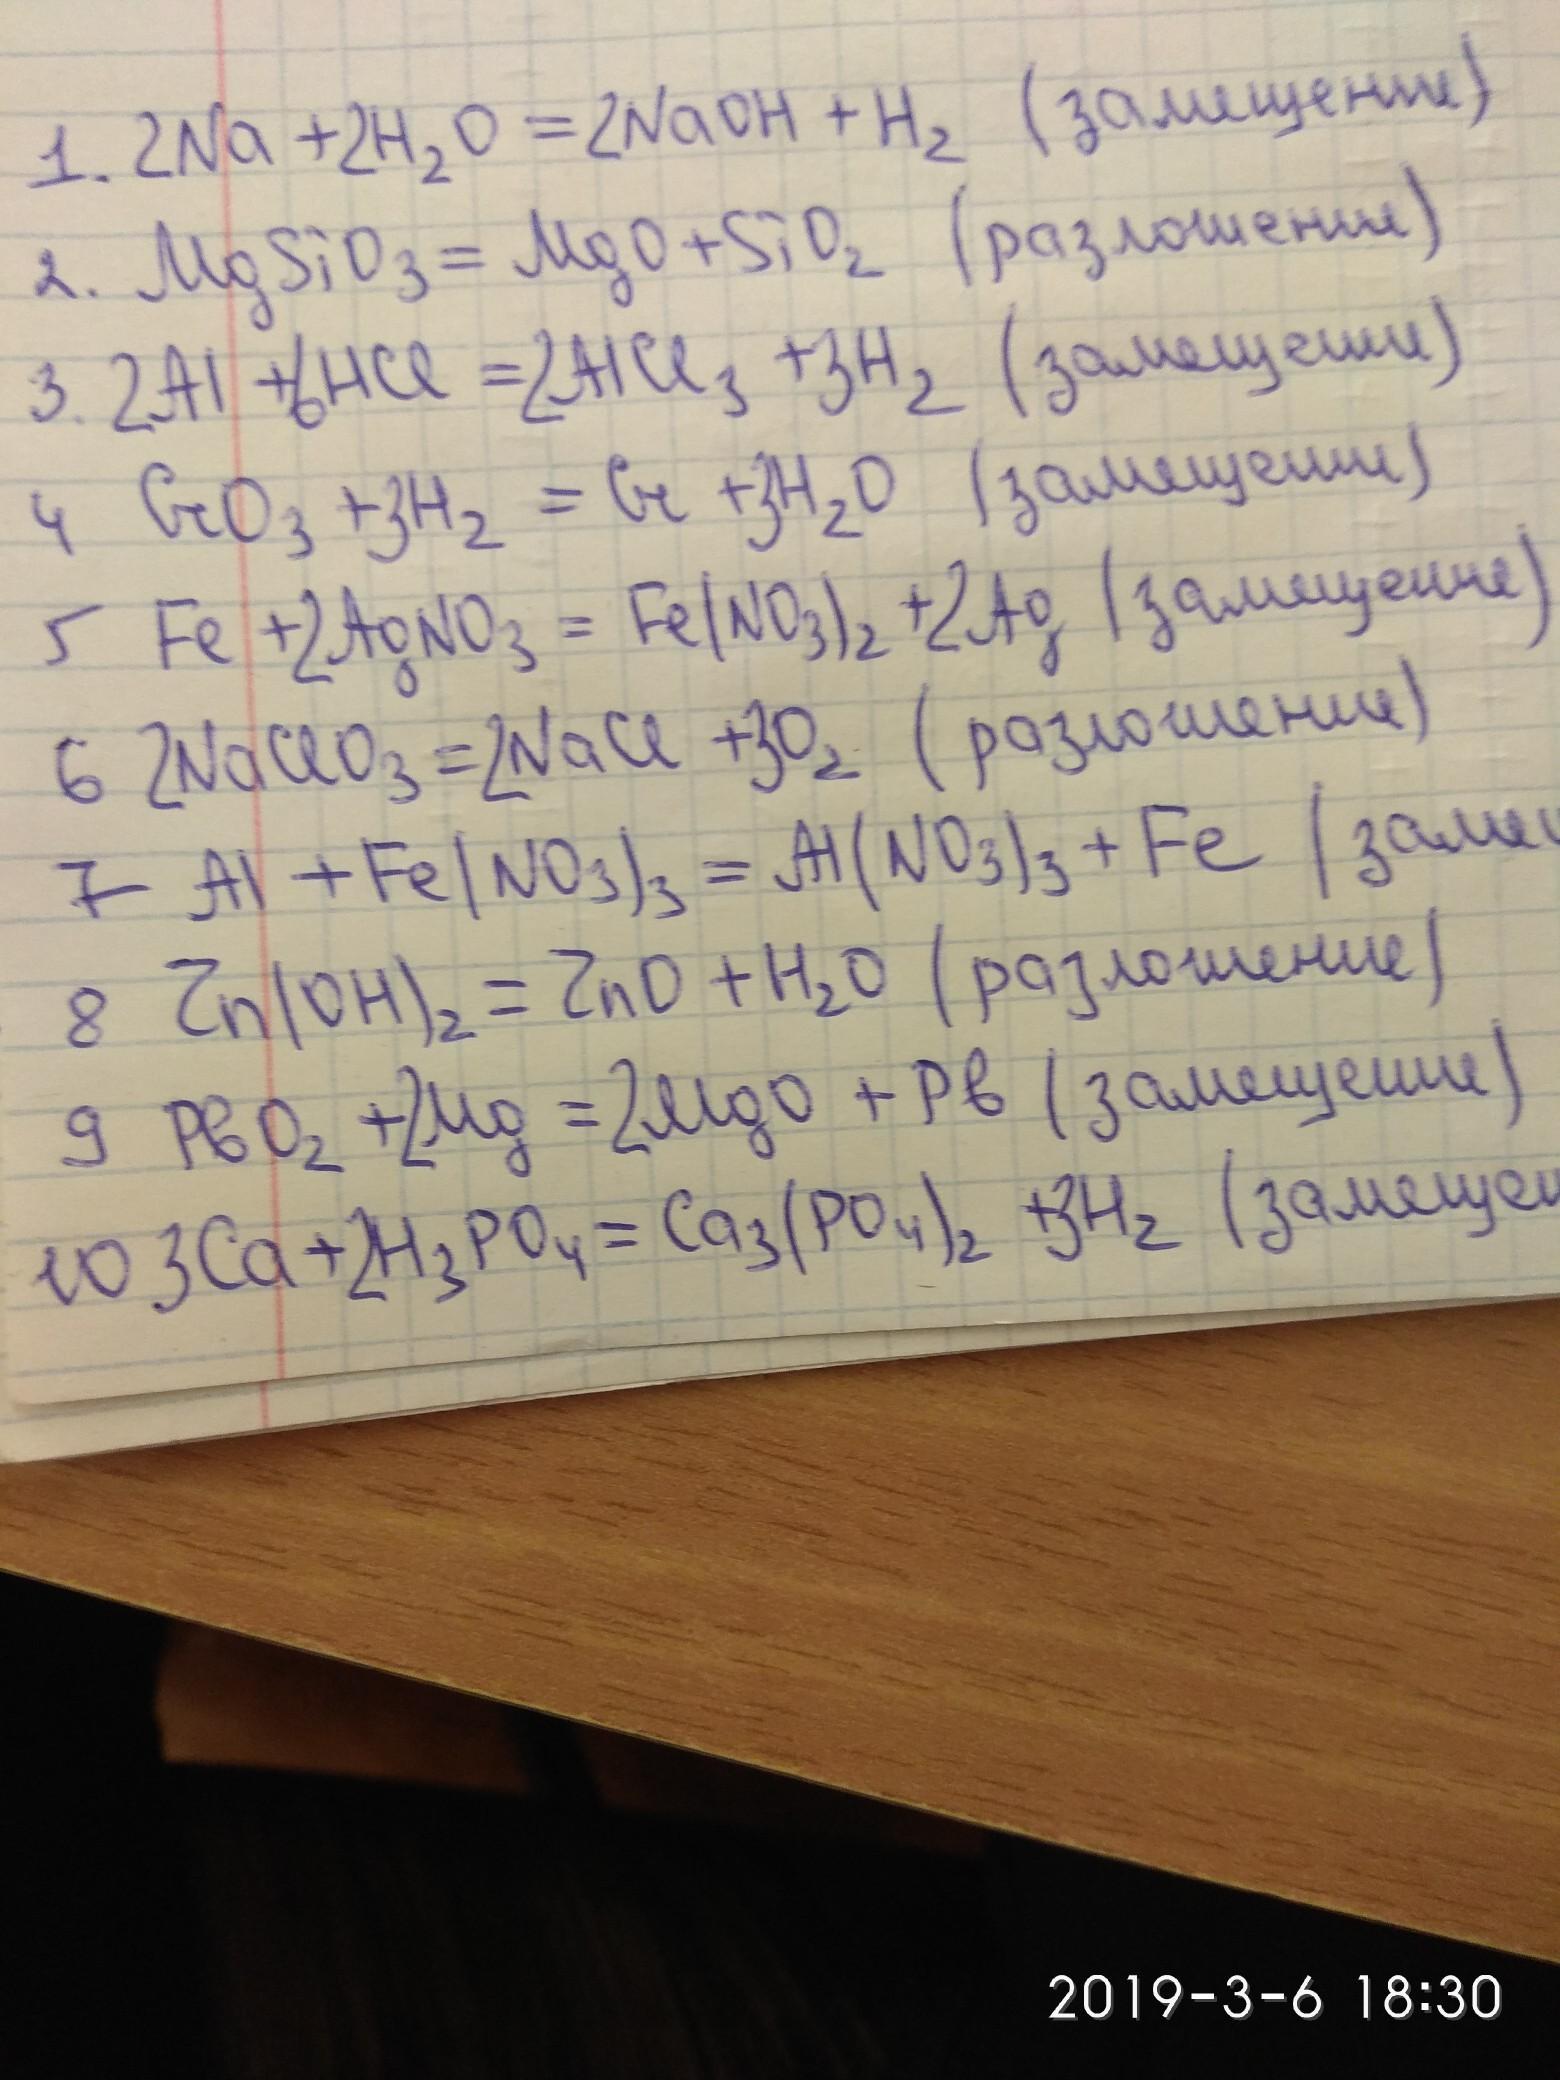 1. 2Na + 2H₂O = 2NaOH + H₂ (замещение)
2. MgSiO₃ = MgO + SiO₂ (разложение)
3. 2Al + 6HCl = 2AlCl₃ + 3H₂ (замещение)
4 CrO₃ + 3H₂ = Cr + 3H₂O (замещение)
5 Fe + 2AgNO₃ = Fe(NO₃)₂ + 2Ag (замещение)
6 2NaClO₃ = 2NaCl + 3O₂ (разложение)
7 Al + Fe(NO₃)₃ = Al(NO₃)₃ + Fe (замещ
8 Zn(OH)₂ = ZnO + H₂O (разложение)
9 PbO₂ + 2Mg = 2MgO + Pb (замещение)
10 3Ca + 2H₃PO₄ = Ca₃(PO₄)₂ + 3H₂ (замещен
2019-3-6 18:30